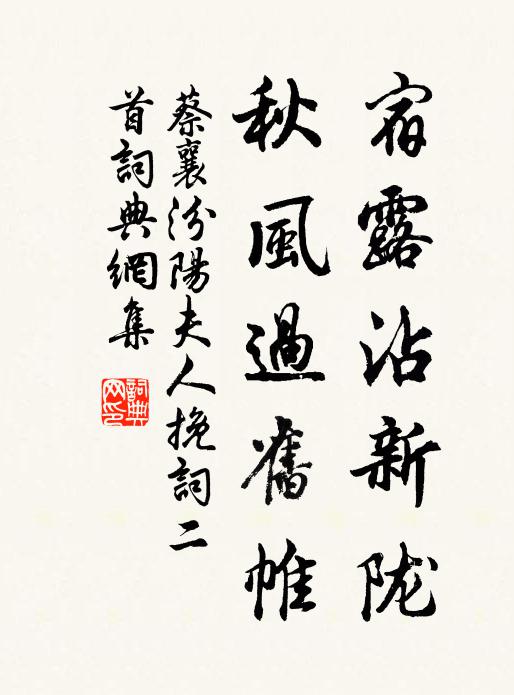 宿露沾新陇
秋風過舊帷
蔡襄汾陽夫人挽詞二
首詞典網集
詞典
网印